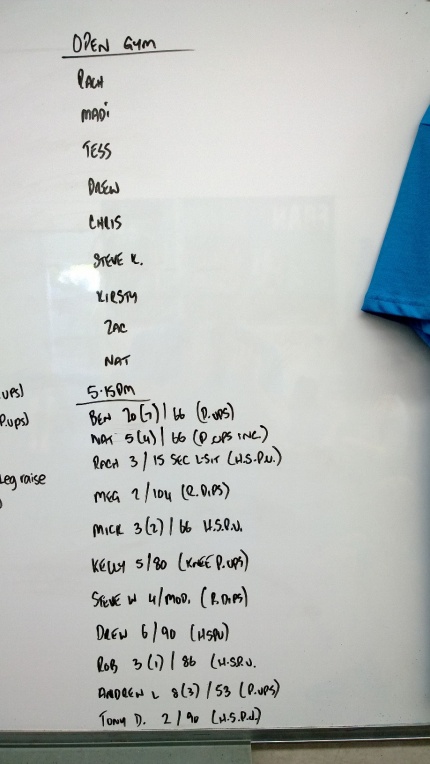 OPEN GYM
RACH
MADi
TESS
DREW
CHRIS
STEVE K.
KIRSTY
ZAC
NAT
UPS)
P.UPS)
Leg raise
5.15PM
BEN 20 (7) / 66 (P.UPS)
NAT 5 (4) / 66 (P.UPS INC.)
RACH 3 / 15 SEC L-SIT (H.S.P.U.)
MEG 2/104 (R.DIPS)
MICK 3 (2) / 66 H.S.P.U.
KELLY 5/80 (KNEE P.UPS)
STEVE W 4/MOD. (R.DIPS)
DREW 6/90 (HSPU)
ROB 3 (1) / 86 (H.S.P.U.
ANDREW L 8(3) / 53 (P.UPS)
TONY D. 2/90 (H.S.P.U.)